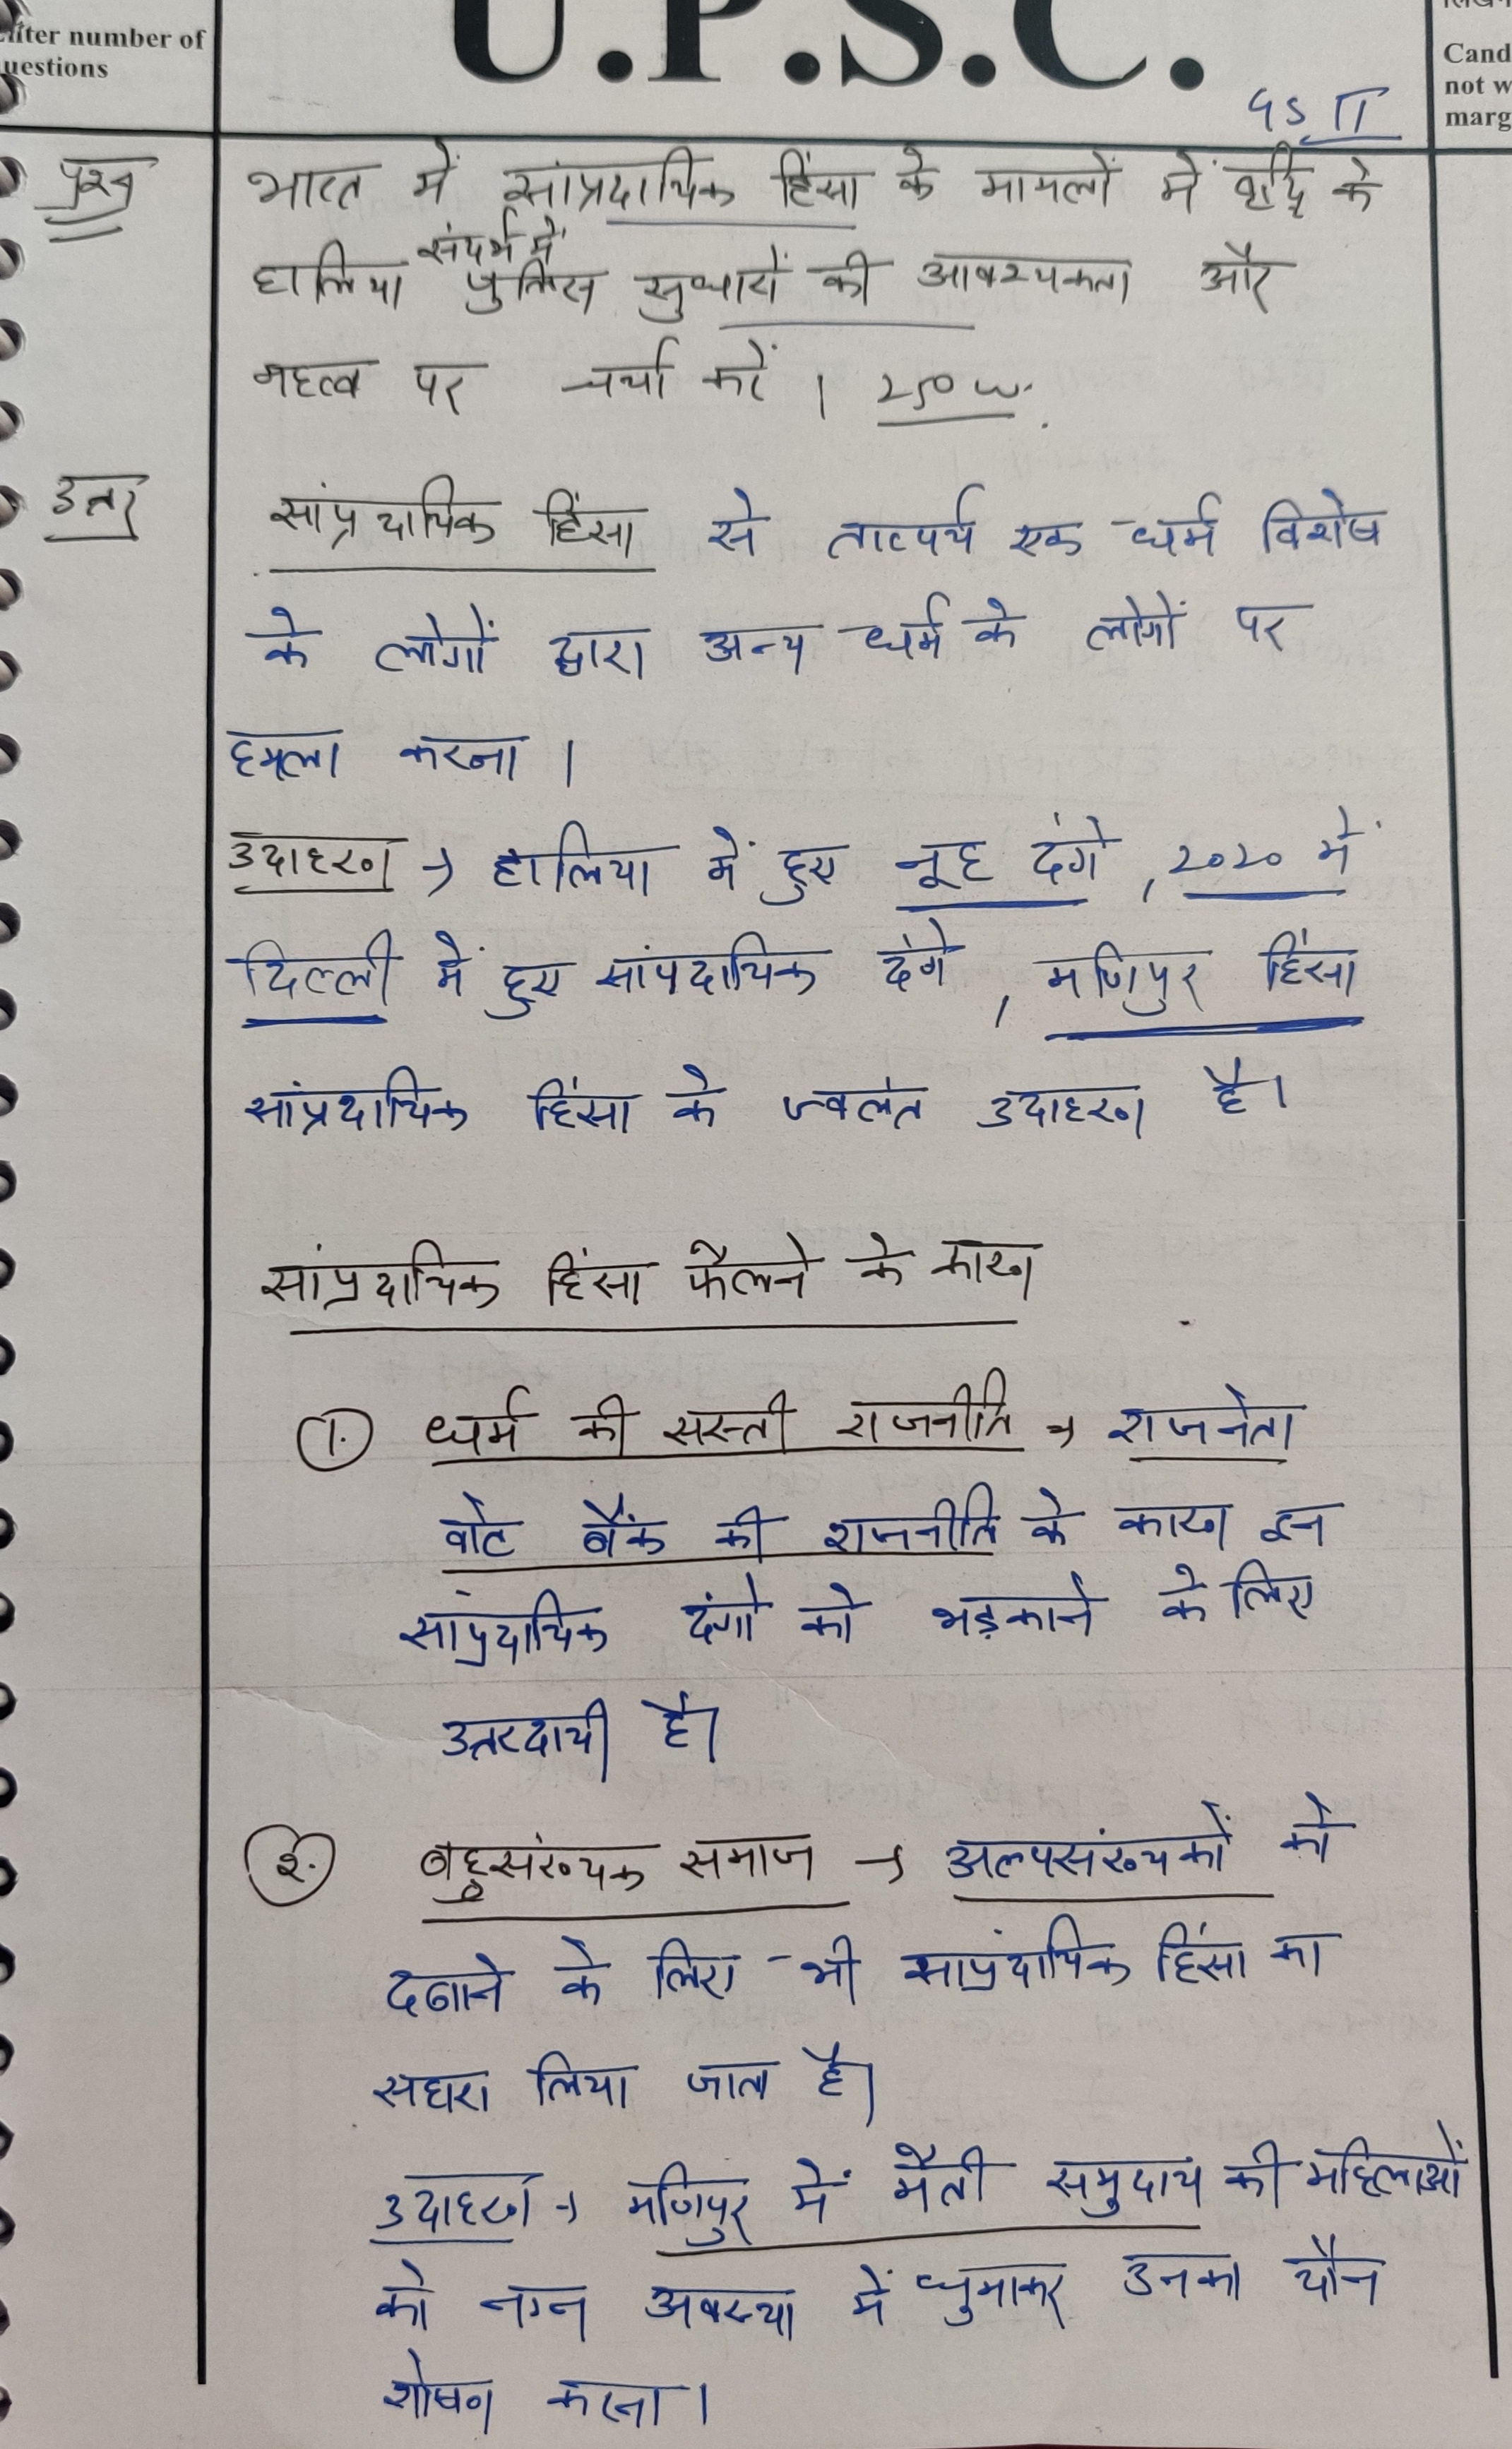 uiter number of
uestions
U.P.S.C.
Cand
not w
marg
GS II
प्रश्न
भारत में सांप्रदायिक हिंसा के मामलों में वृद्धि के
हालिया संदर्भ में पुलिस सुधारों की आवश्यकता और
महत्व पर चर्चा करें। 250 w.
उत्तर
सांप्रदायिक हिंसा से तात्पर्य एक धर्म विशेष
के लोगों द्वारा अन्य धर्म के लोगों पर
हमला करना।
उदाहरण → हालिया में हुए नूह दंगे, 2020 में
दिल्ली में हुए सांपदायिक दंगे, मणिपुर हिंसा
सांप्रदायिक हिंसा के ज्वलंत उदाहरण है।
सांप्रदायिक हिंसा फैलने के कारण
1. धर्म की सस्ती राजनीति → राजनेता
वोट बैंक की राजनीति के कारण इन
सांप्रदायिक दंगो को भड़काने के लिए
उत्तरदायी है।
2. बहुसंख्यक समाज → अल्पसंख्यकों को
दबाने के लिए भी साप्रंदायिक हिंसा का
सहारा लिया जाता है।
उदाहरण → मणिपुर में मैती समुदाय की महिलाओं
को नग्न अवस्था में घुमाकर उनका यौन
शोषण करना।